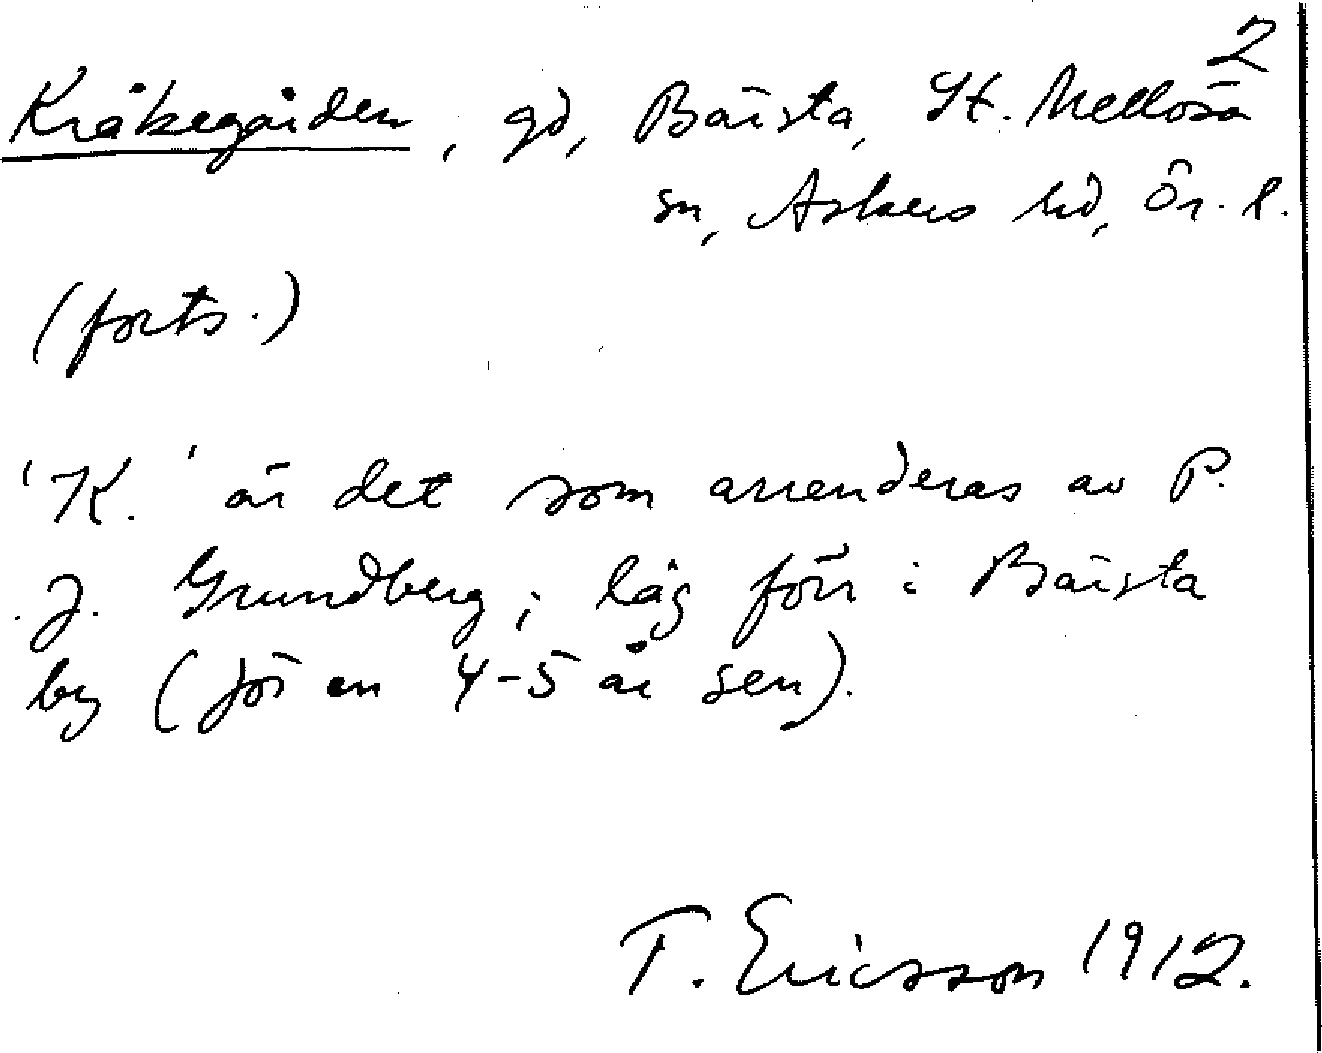 2
Kråkegården, gd, Bärsta, St. Mellösa
sn, Askers hd, Ör. l.
(forts.)
'K.' är det som arrenderas av P.
J. Grundberg; låg förr i Bärsta
by (för en 4-5 år sen).
T. Ericsson 1912.